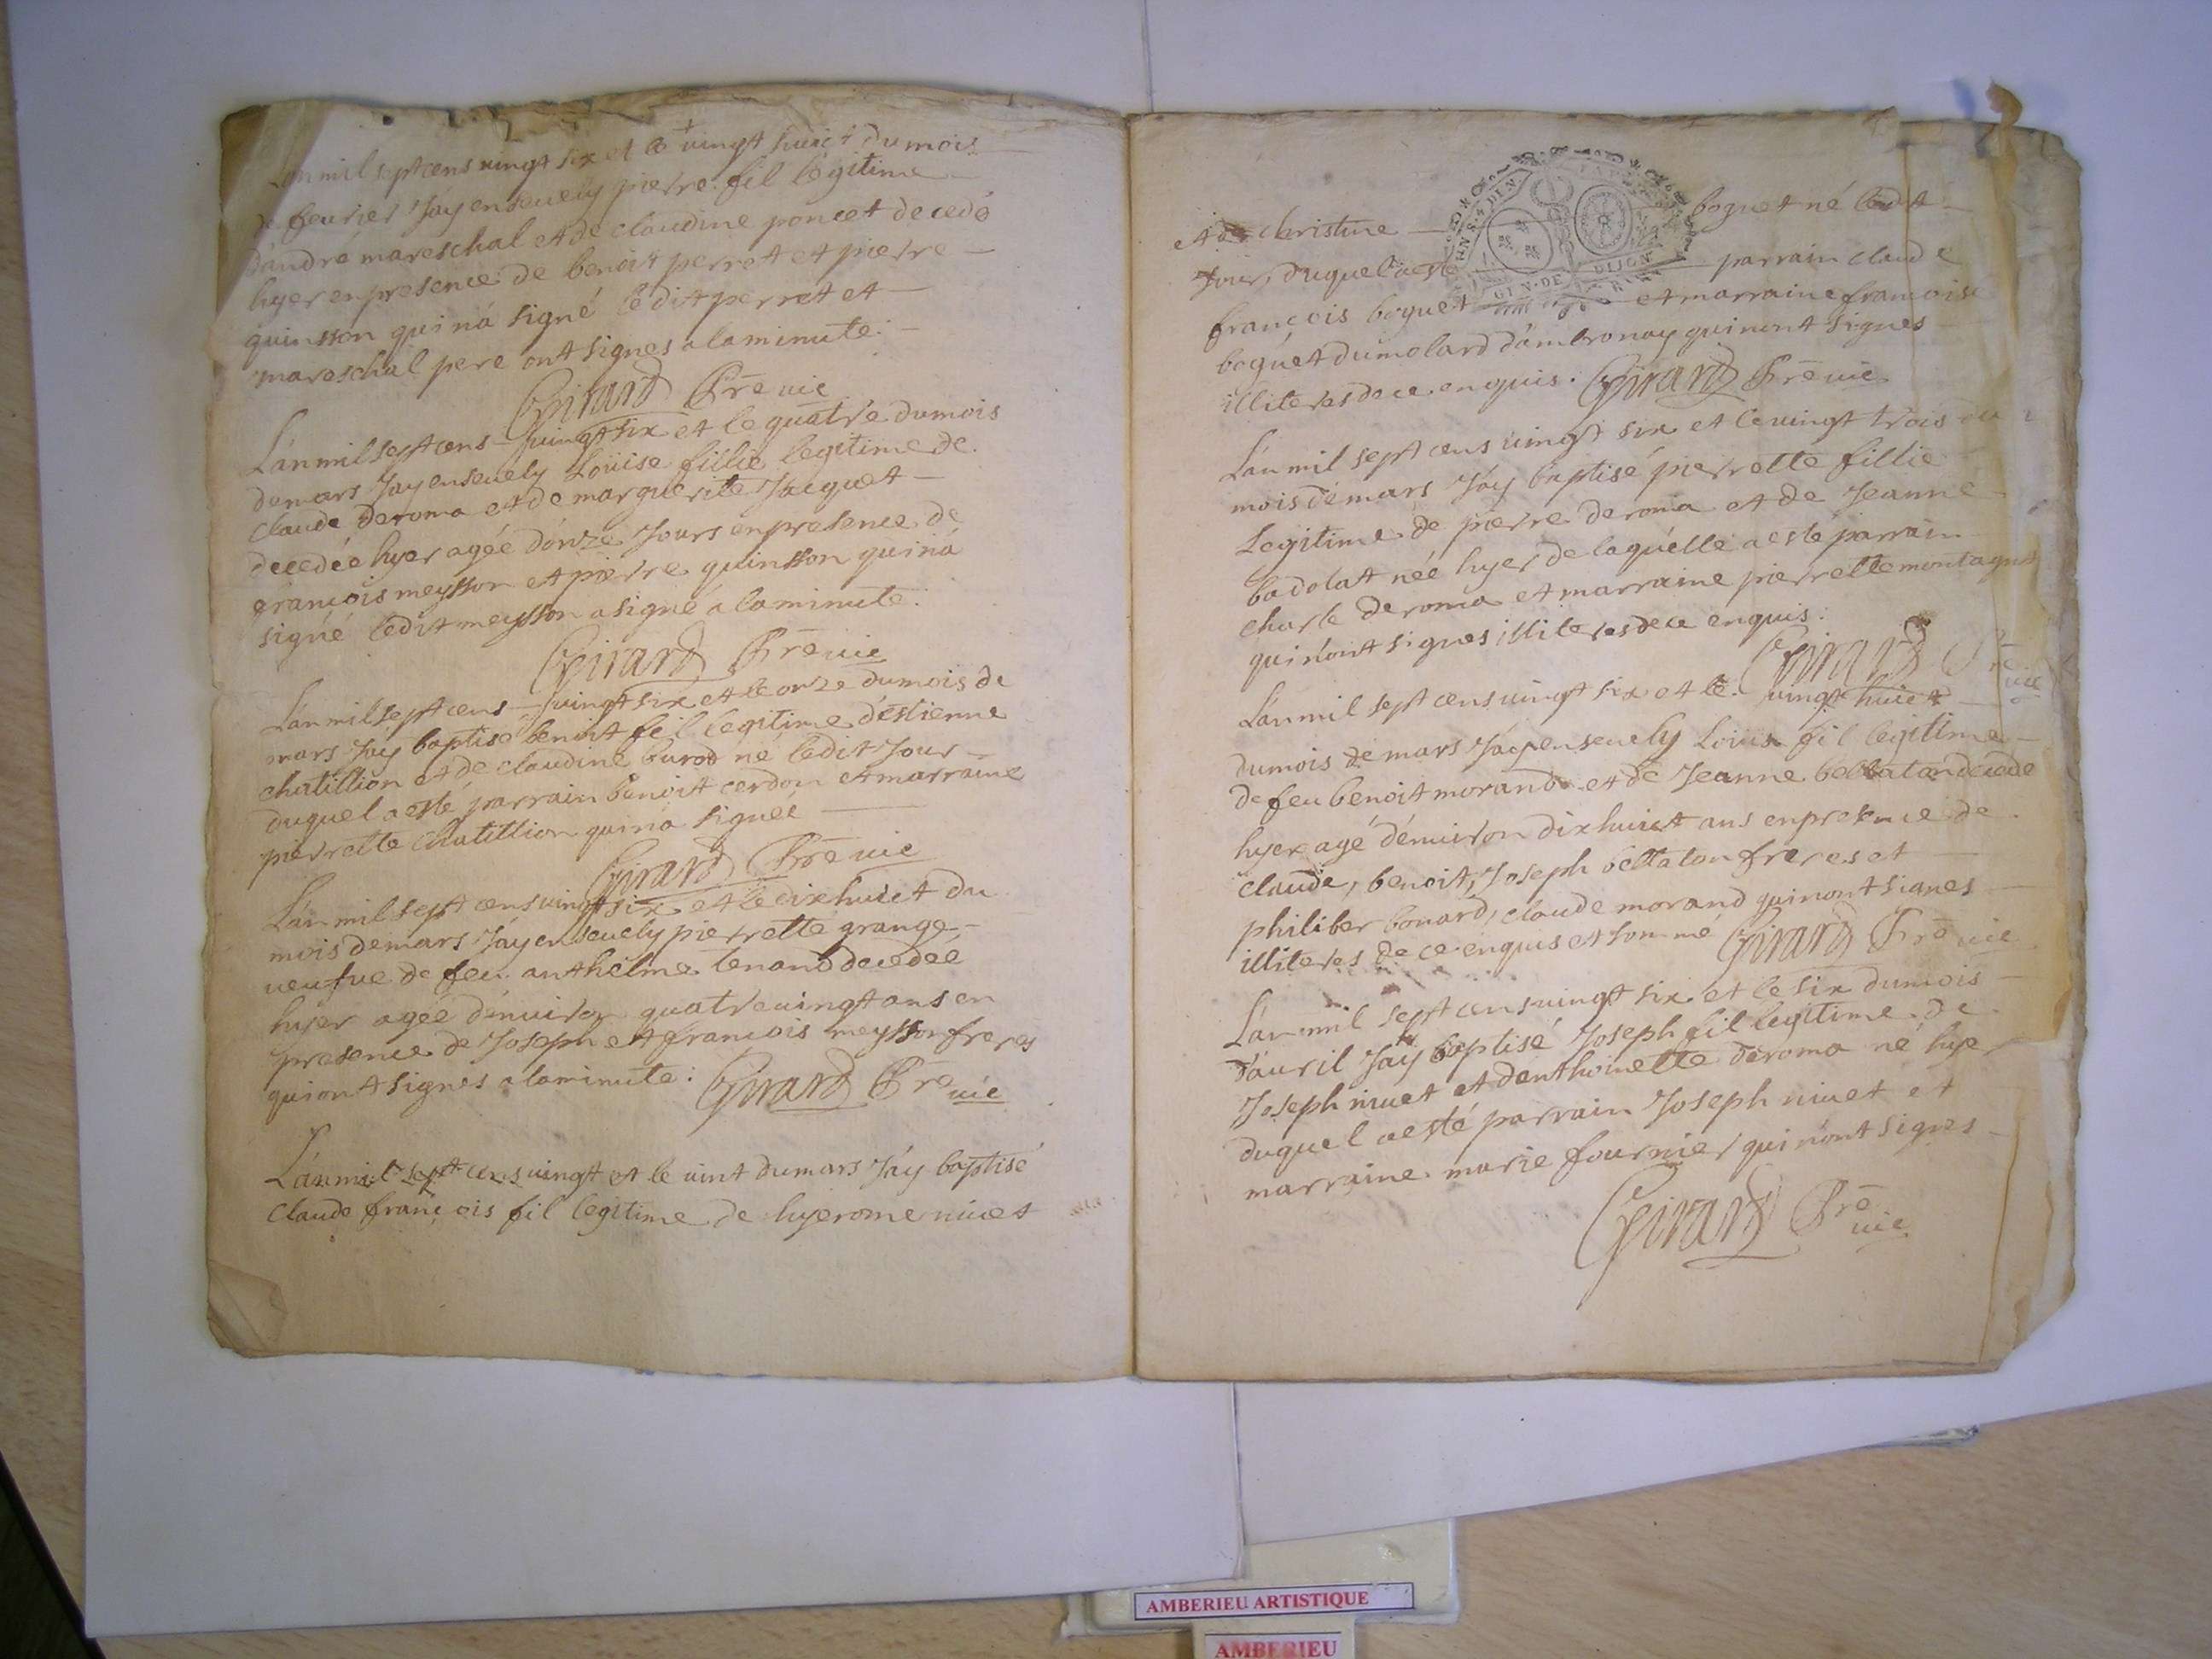 L'an mil sept cens vingt six et le vingt huict du mois
de feurier J'ay enseuely pierre fil legitime
d'andré mareschal et de claudine poncet decedé
hyer en presence de benoit perret et pierre
quinsson qui n'a signé ledit perret et
mareschal pere ont signes a la minute
Girard Pre vic
L'an mil sept cens vingt six et le quatre du mois
de mars J'ay enseuely Loüise fillie legitime de
claude deroma et de marguerite Jacquet
decedée hyer agée d'onze Jours en presence de
françois meysson et pierre quinsson qui n'a
signé ledit meysson a signé a la minute.
Girard Pre vic
L'an mil sept cens vingt six et le onze du mois de
mars J'ay baptisé benoit fil legitime d'estienne
chatillion et de claudine burod né ledit Jour
duquel a esté parrain benoit cerdon et marraine
pierrette chatillion qui n'a signée
Girard Pre vic
L'an mil sept cens vingt six et le dixhuict du
mois de mars J'ay enseuely pierrette grange
veufue de feu anthelme tenand decedée
hyer agée d'enuiron quatre vingt ans en
presence de Joseph et francois meysson freres
qui ont signés a la minute: Girard Pre
vic
L'an mil sept cens vingt et le vint du mars J'ay baptisé
Claude françois fil legitime de hyerome niuet
et de christine boguet né ledit
Jour, duquel a esté parrain claude
françois boguet et marraine francoise
boguet du molard d'ambronay qui n'ont signes
illiteres de ce enquis. Girard Pre vic
GIN. DE DIJON
L'an mil sept cens vingt six et le vingt trois du
mois de mars J'ay baptisé pierrette fillie
Legitime de pierre deroma et de Jeanne
badolat neé hyer de laquelle a esté parrain
charle deroma et marraine pierrette montagne
qui n'ont signes illiteres de ce enquis.
Girard Pre
vic
L'an mil sept cens vingt six et le vingt huict
du mois de mars J'ay enseuely Louis fil legitime
de feu benoit morand et de Jeanne bellaton decede
hyer agé d'enuiron dixhuict ans en presence de
claude, benoit, Joseph bellaton freres et
philiber bonard, claude morand qui n'ont signes
illiteres de ce enquis et sommé Girard Pre vic
L'an mil sept cens vingt six et le six du mois
d'auril J'ay baptisé Joseph fil legitime de
Joseph niuet et d'enthoinette deroma né hyer
duquel a esté parrain Joseph niuet et
marraine marie fournier qui n'ont signes
Girard Pre
vic
AMBERIEU ARTISTIQUE
AMBERIEU